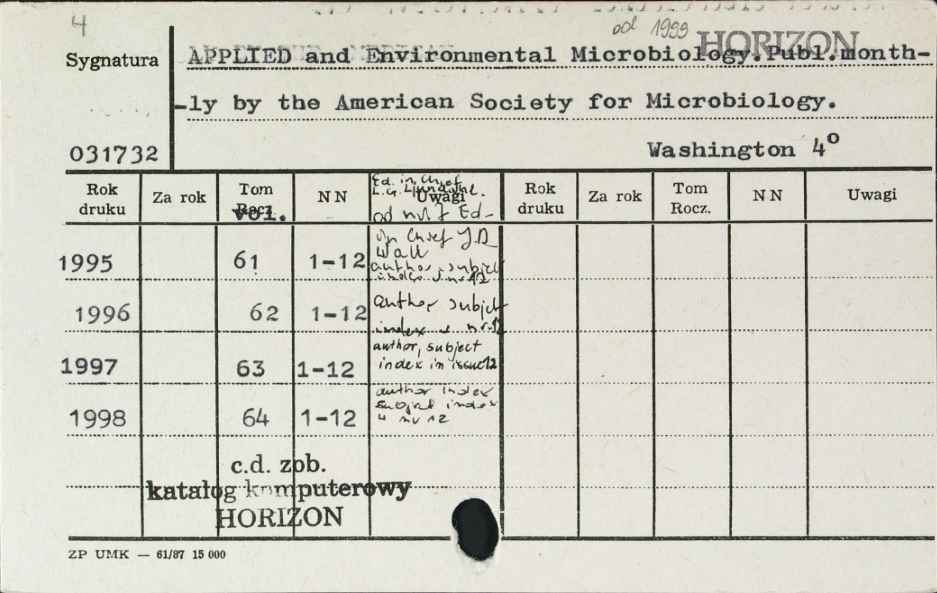 4
od 1999 HORIZON
Sygnatura APPLIED and Environmental Microbiology.Publ.month-
-ly by the American Society for Microbiology.
031732 Washington 4º
Rok druku Za rok Tom Rocz. vol. N N Ed. in Chief Uwagi Rok druku Za rok Tom Rocz. N N Uwagi
od nr Ed-
in Chief J.D
Wall
1995 61 1-12 author, subject
index nr 12
1996 62 1-12 author subject
index nr 12
1997 63 1-12 author, subject
index in issue 12
1998 64 1-12 author index
subject index
nr 12
c.d. zob.
katalog komputerowy
HORIZON
ZP UMK — 61/87 15 000